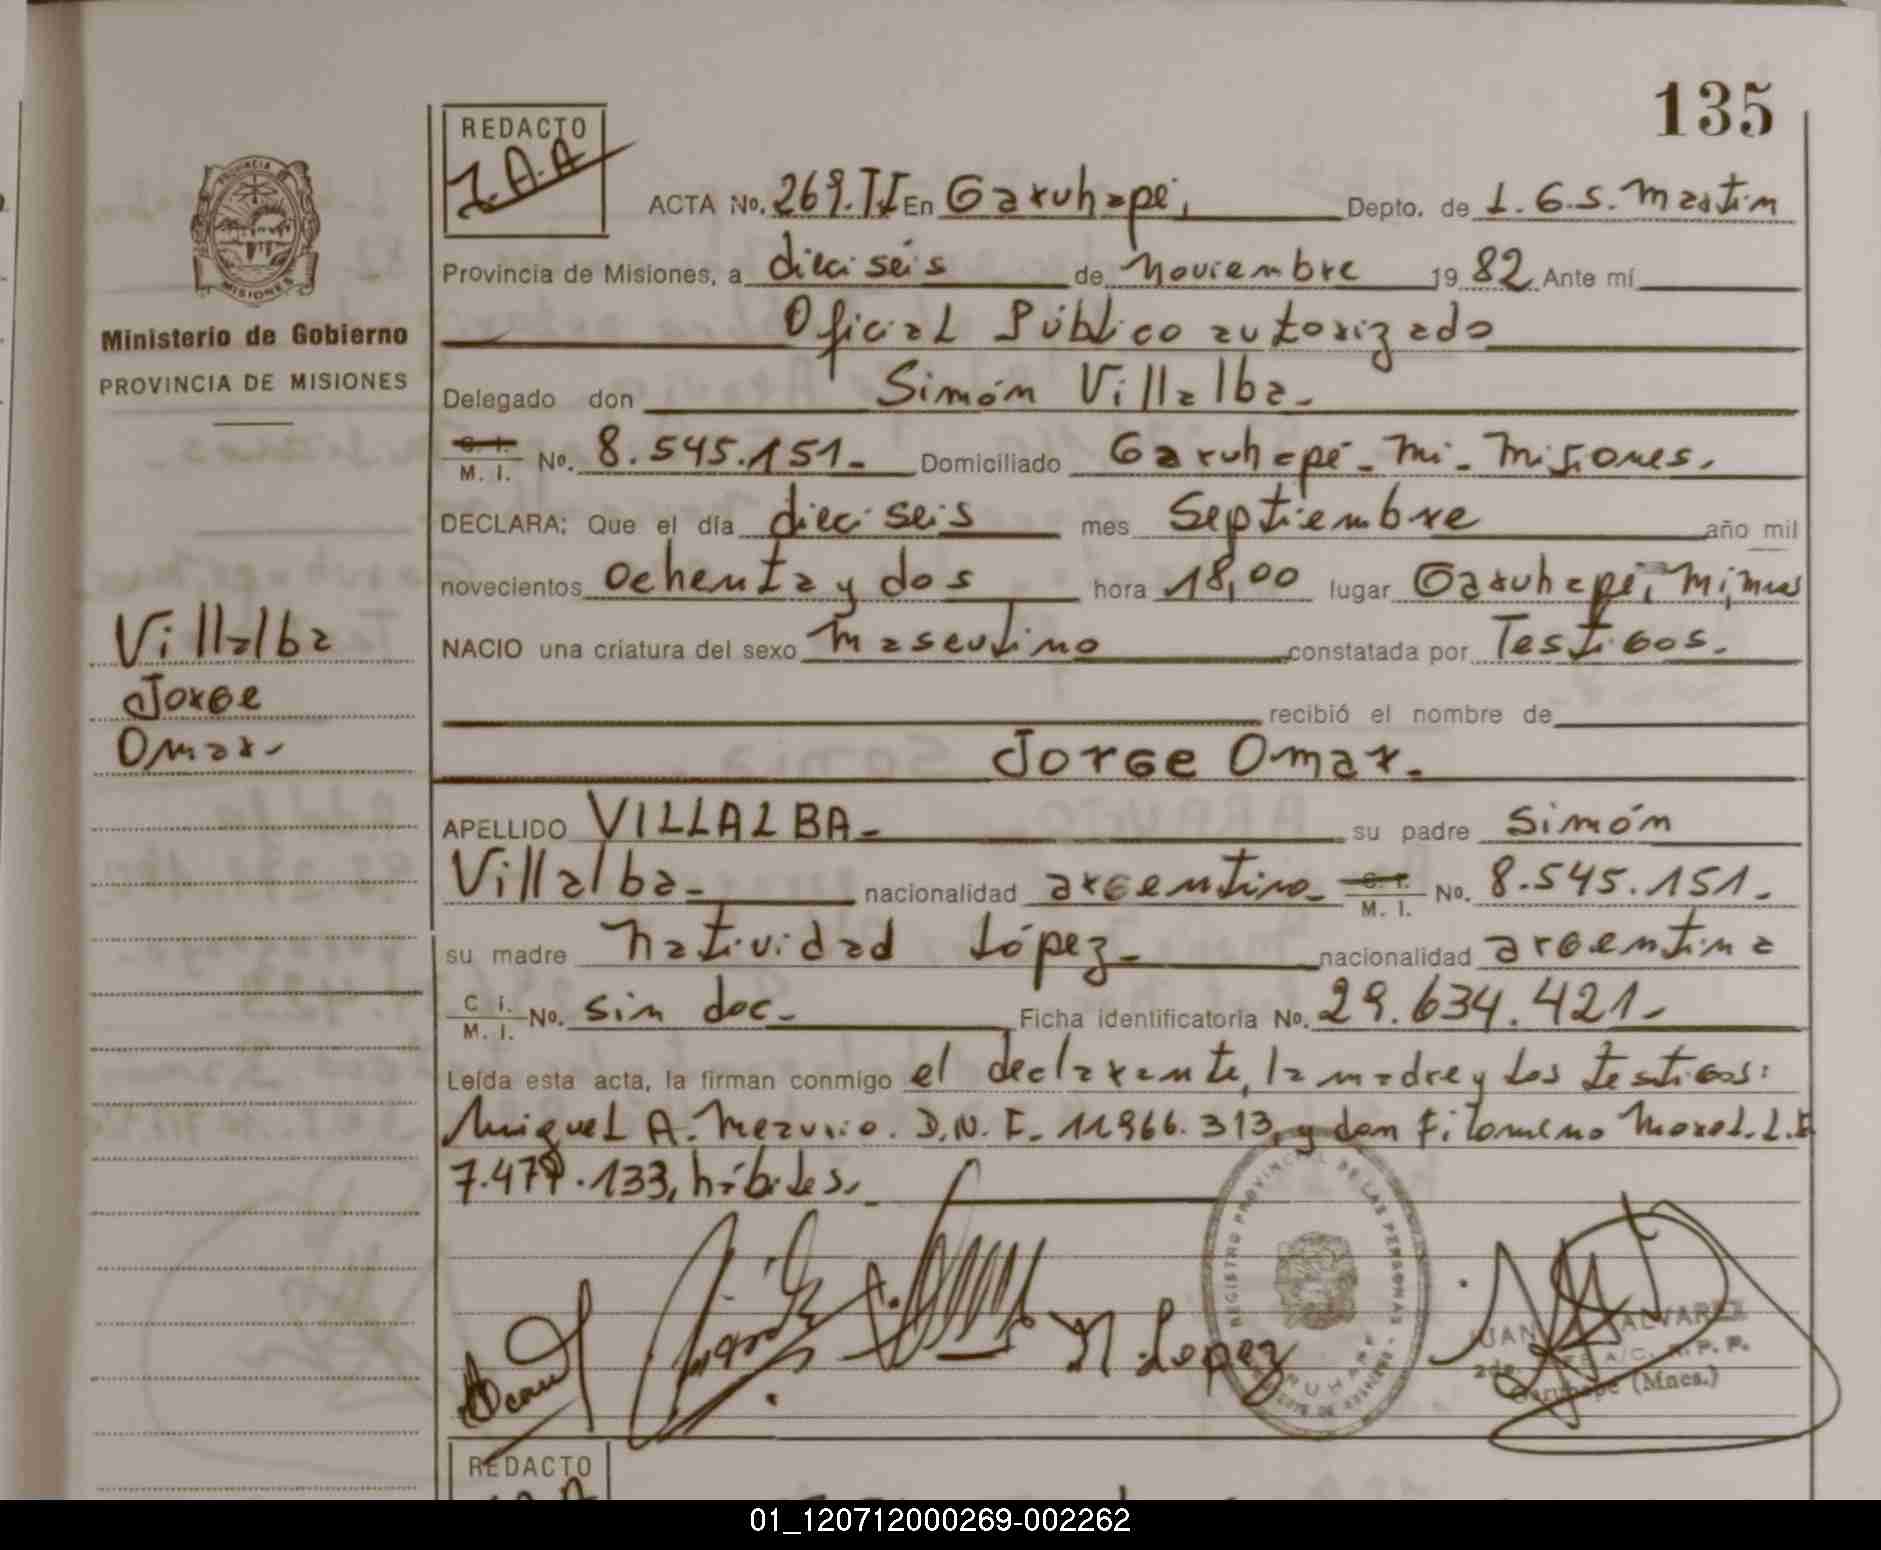 135
REDACTO
J.A.A
ACTA No. 269.TI En Garuhapé, Depto. de L.G.S. Martin
Provincia de Misiones, a dieciséis de Noviembre 1982 Ante mí
Oficial Público autorizado
Delegado don Simón Villalba-
C. I. / M. I. No. 8.545.151- Domiciliado Garuhapé-Mi-Misiones.
DECLARA: Que el día dieciseis mes Septiembre año mil
novecientos ochenta y dos hora 18,00 lugar Garuhapé, Mi, Mnes
NACIO una criatura del sexo Masculino constatada por Testigos.
recibió el nombre de
Jorge Omar.
APELLIDO VILLALBA- su padre Simón
Villalba- nacionalidad argentino- C. I. / M. I. No. 8.545.151-
su madre Natividad López- nacionalidad argentina
C. I. / M. I. No. sin doc- Ficha identificatoria No. 29.634.421-
Leída esta acta, la firman conmigo el declarante, la madre y los testigos:
Miguel A. D.N.I. 11966.313, y don Filomeno Morel. L.E
7.477.133, hábiles.
PROVINCIA DE
MISIONES
Ministerio de Gobierno
PROVINCIA DE MISIONES
Villalba
Jorge
Omar-
N. Lopez
REGISTRO PROVINCIAL DE LAS PERSONAS
JUAN ALVAREZ
Garuhapé (Mnes.)
REDACTO
01_120712000269-002262